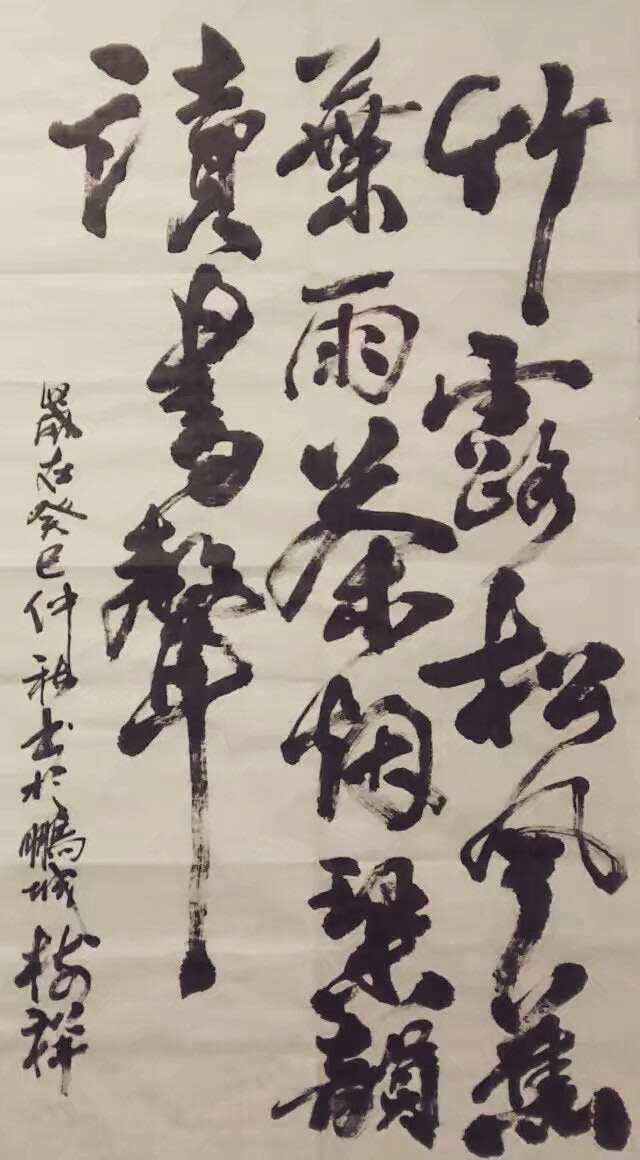 竹露松風蕉
葉雨茶烟琹韻
讀書聲
歲在癸巳仲秋書於鵬城樹祥